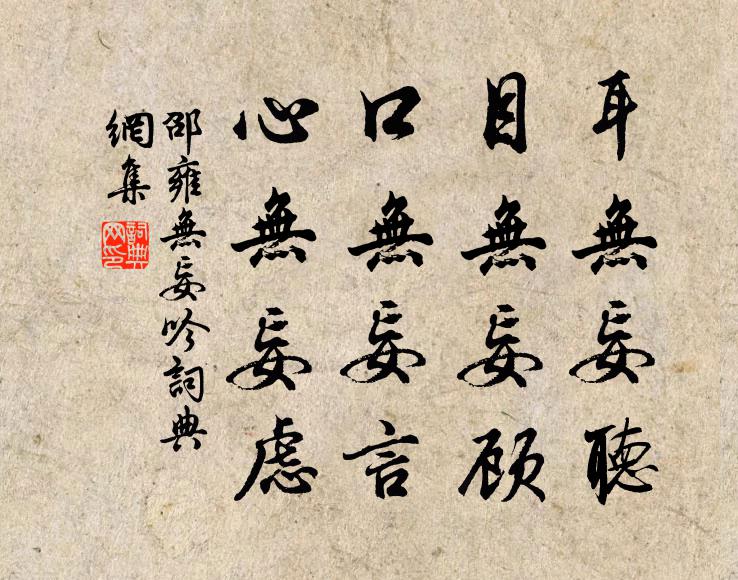 耳無妄聽
目無妄顧
口無妄言
心無妄慮
邵雍無妄吟詞典
網集
詞典
网印